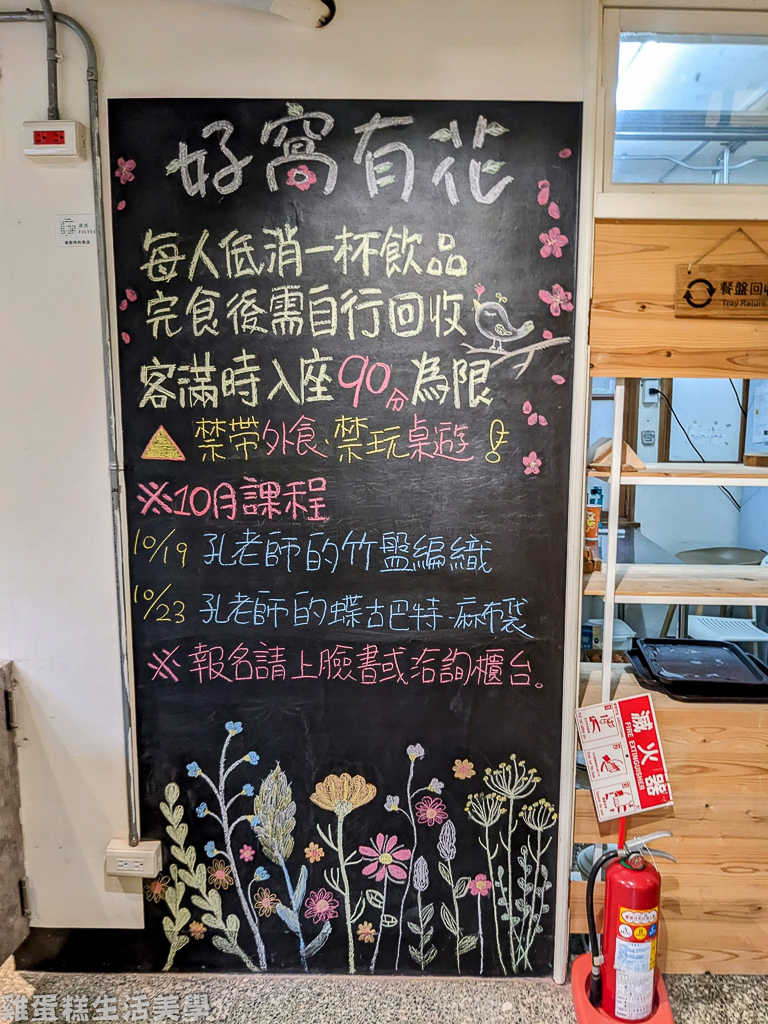 好窩有花
每人低消一杯飲品
完食後需自行回收
客滿時入座90分為限
禁帶外食·禁玩桌遊
※10月課程
10/19 孔老師的竹盤編織
10/23 孔老師的蝶古巴特-麻布袋
※報名請上臉書或洽詢櫃台。
餐盤回收
Tray Return
滅火器
FIRE EXTINGUISHER
雞蛋糕生活美學